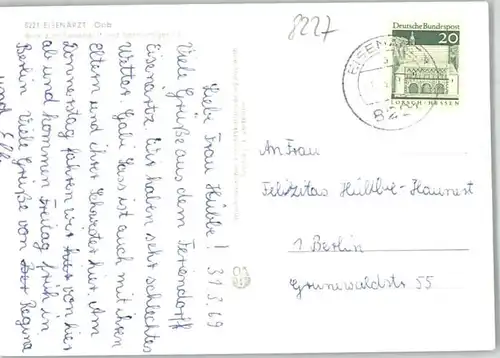 8221 EISENÄRZT Obb
8227
Deutsche Bundespost
20
LORSCH · HESSEN
EISENÄRZT
822
31.3.69
Liebe Frau Hübbe!
Viele Grüße aus dem Feriendorf
Eisenärtz. Wir haben sehr schlechtes
Wetter. Gabi ist auch mit ihren
Eltern und ihrer Schwester hier. Am
Donnerstag fahren wir hier von hier
ab und kommen Freitag früh in
Berlin Viele Grüße von Regina
und
An Frau
Felizitas Hübbe-Haunert
1 Berlin
Grunewaldstr 55